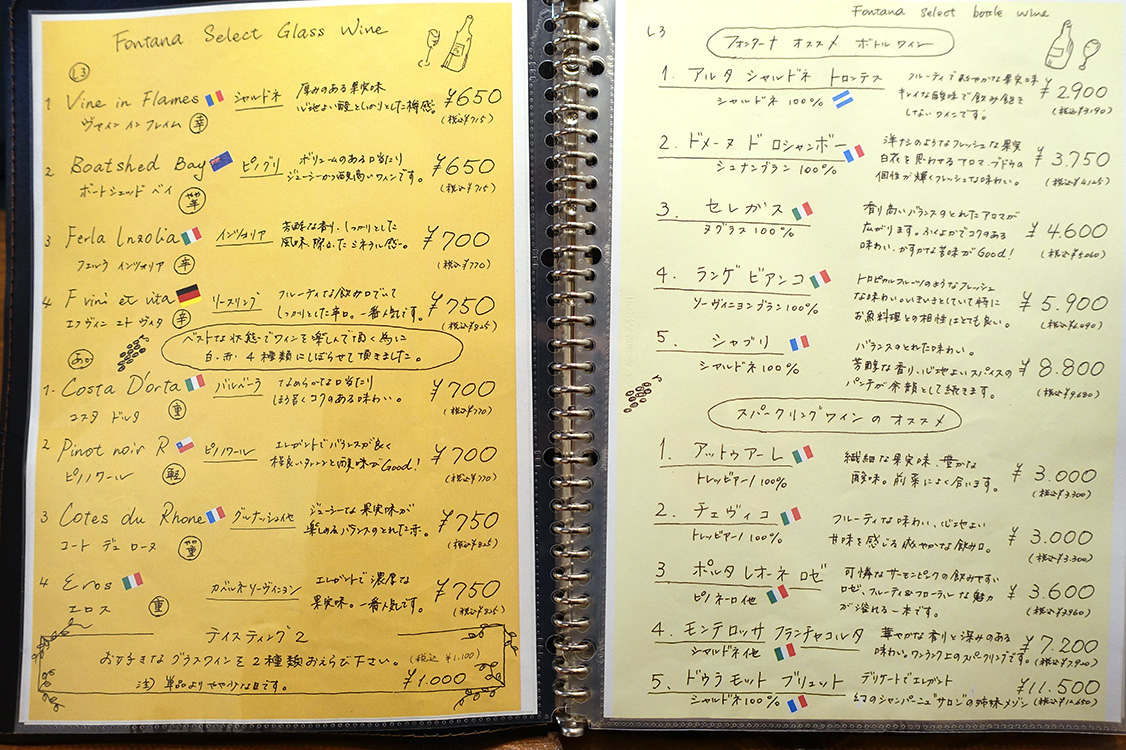 Fontana Select Glass Wine
L3
1 Vine in Flames シャルドネ 厚みのある果実味 ¥650
心地よい酸としっかりとした樽感。 (税込¥715)
ヴァイン イン フレイム 辛
2 Boatshed Bay ピノグリ ボリュームのある口当たり ¥650
ジューシーかつ酸高いワインです。 (税込¥715)
ボートシェッド ベイ やや辛
3 Ferla Inzolia インツォリア 芳醇な香り、しっかりとした ¥700
風味 際立ったミネラル感。 (税込¥770)
フェルラ インツォリア 辛
4 F vini et vita リースリング フルーティな飲み口でいて ¥750
しっかりとした辛口。一番人気です。 (税込¥825)
エフヴィン エト ヴィタ 辛
ベストな状態でワインを楽しんで頂く為に
白・赤・4種類にしぼらせて頂きました。
あか
1. Costa D'orta バルベーラ なめらかな口当たり ¥700
ほろ苦くコクのある味わい。 (税込¥770)
コスタ ドルタ 重
2 Pinot noir R ピノノワール エレガントでバランスが良く ¥700
程良いタンニンと酸味がGood! (税込¥770)
ピノノワール 軽
3 Cotes du Rhone グルナッシュ他 ジューシーな果実味が ¥750
楽しめるバランスのとれた赤。 (税込¥825)
コート デュ ローヌ やや重
4 Eros カベルネソーヴィニヨン エレガントで濃厚な ¥750
果実味。一番人気です。 (税込¥825)
エロス 重
テイスティング2
お好きなグラスワインを2種類おえらび下さい。 (税込 ¥1,100)
注) 単品よりやや少な目です。 ¥1.000
Fontana select bottle wine
L3
フォンターナ オススメ ボトルワイン
1. アルタ シャルドネ トロンテス フルーティで爽やかな果実味 ¥2.900
シャルドネ 100% キレイな酸味で飲み飽き (税込¥3,190)
しないワインです。
2. ドメーヌ ド ロシャンボー 洋ナシのようなフレッシュな果実 ¥3.750
シュナンブラン 100% 白衣を思わせるアロマ、ブドウの (税込¥4,125)
個性が輝くフレッシュな味わい。
3. セレガス 香り高いバランスのとれたアロマが ¥4.600
ヌグラス 100% 広がります。ふくよかでコクのある (税込¥5,060)
味わい、かすかな苦味がGood!
4. ランゲ ビアンコ トロピカルフルーツのようなフレッシュ
ソーヴィニヨンブラン 100% な味わい。いきいきとしていて特に ¥5.900
お魚料理との相性はとても良い。 (税込¥6,490)
5. シャブリ バランスのとれた味わい。
シャルドネ 100% 芳醇な香り、心地よいスパイスの ¥8.800
パンチが余韻として続きます。 (税込¥9,680)
スパークリングワインのオススメ
1. アットゥアーレ 繊細な果実味、豊かな ¥3.000
トレッビアーノ 100% 酸味。前菜によく合います。 (税込¥3,300)
2. チェヴィコ フルーティな味わい、心地よい ¥3.000
トレッビアーノ 100% 甘味を感じる爽やかな飲み口。 (税込¥3,300)
3 ポルタ レオーネ ロゼ 可憐なサーモンピンクの飲みやすい ¥3.600
ピノネーロ他 ロゼ、フルーティ&フローラルな魅力 (税込¥3,960)
が溢れる一本です。
4. モンテロッサ フランチャコルタ 華やかな香りと深みのある ¥7.200
シャルドネ他 味わい。ワンランク上のスパークリングです。 (税込¥7,920)
5. ドゥラモット ブリュット デリケートでエレガント ¥11.500
シャルドネ100% 幻のシャンパーニュ サロンの姉妹メゾン (税込¥12,650)